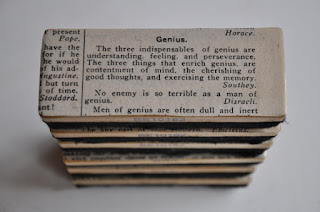 r present
Pope.
have the
for if he
he would
of his ad-
ngustine.
but turn
of time.
Stoddard.
ant!
Horace.
Genius.
The three indispensables of genius are
understanding, feeling, and perseverance.
The three things that enrich genius, are
contentment of mind, the cherishing of
good thoughts, and exercising the memory.
Southey.
No enemy is so terrible as a man of
genius.
Disraeli.
Men of genius are often dull and inert